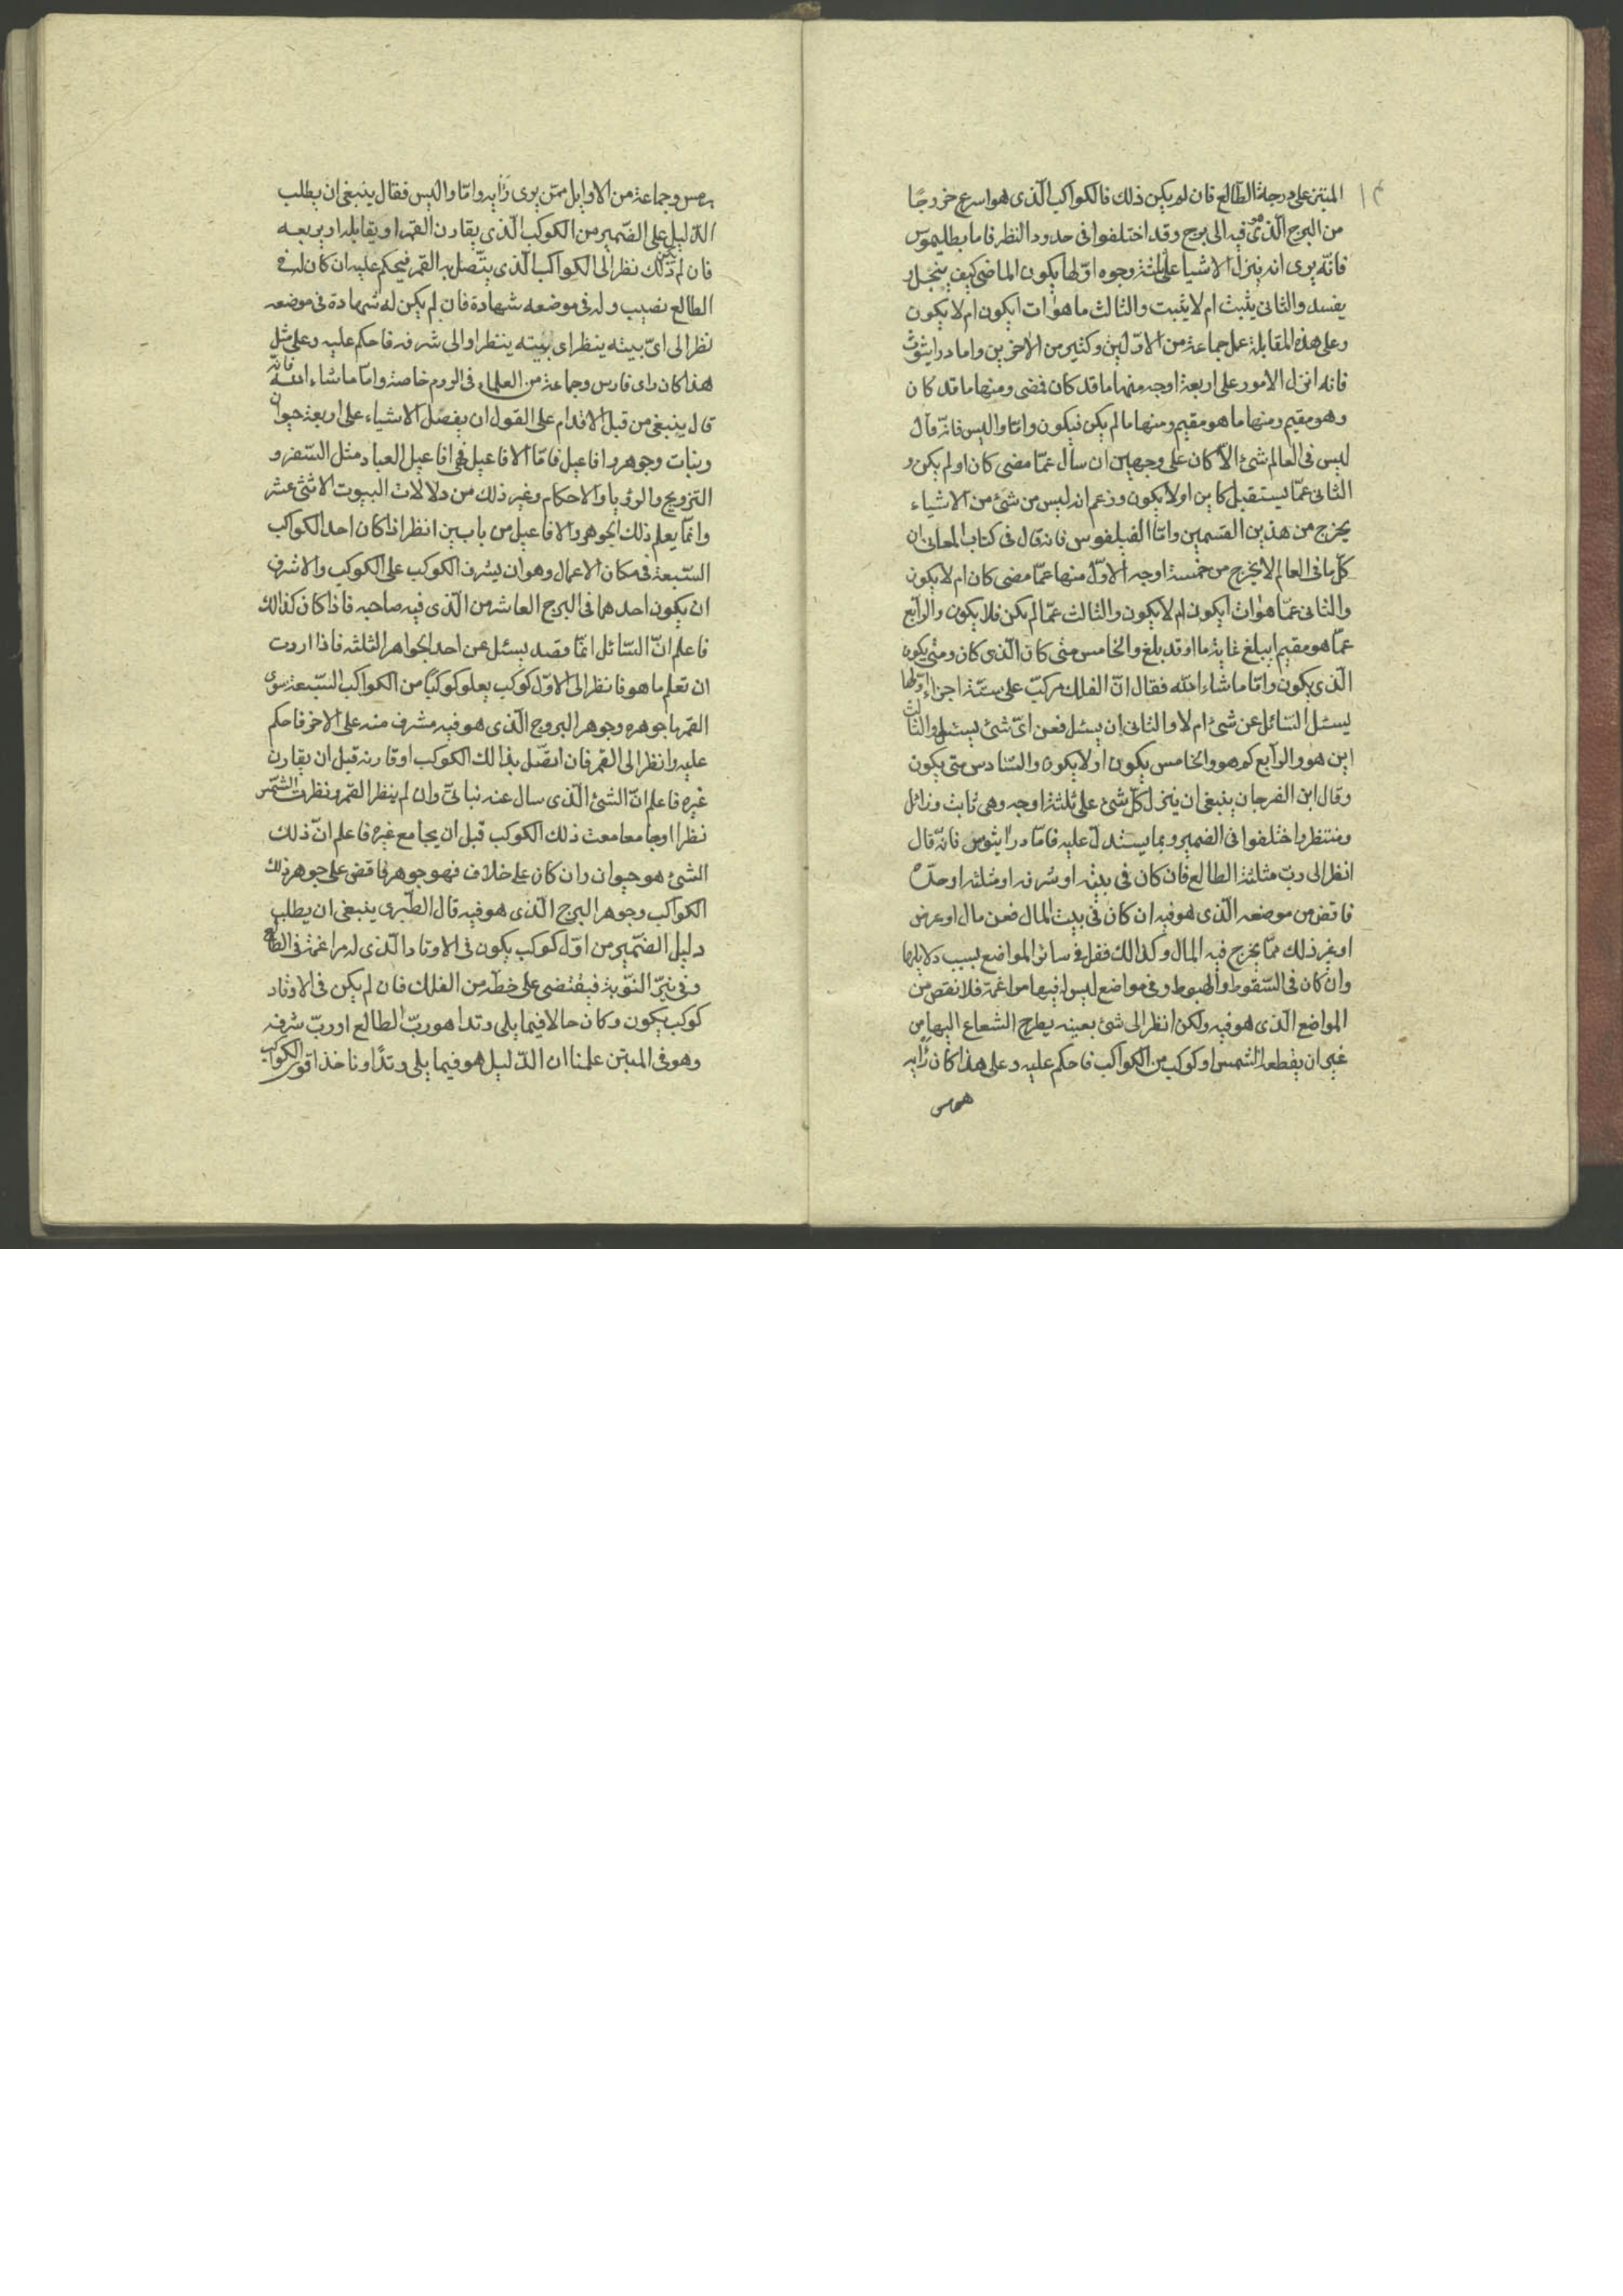 المبتز على درجة الطالع فان لم يكن ذلك فالكواكب الّذى هو اسرع خروجًا
من البرج الّذى هو فيه الى برج وقد اختلفوا فى حدود النظر فاما بطليموس
فانّه يرى انه ينزل الاشيا على ثلثة وجوه اوّلها يكون الماضى كيف ينجل او
يفسد والثانى يثبت ام لا يثبت والثالث ما هوات ايكون ام لا يكون
وعلى هذه المقابلة عمل جماعة من الاوّلين وكثير من الاخرين واما دراينوث
فانه انزل الامور على اربعة اوجه منها ما قد كان فمضى ومنها ما قد كان
وهو مقيم ومنها ما هو مقيم ومنها ما لم يكن فيكون وامّا واليس فانّه قال
ليس فى العالم شئ الاّ كان على وجهين ان سأل عمّا مضى كان او لم يكن و
الثانى عمّا يستقبل كاين اولا يكون وزعم انه ليس من شئ من الاشياء
يخرج من هذين القسمين وامّا الفيلفوس فانه قال فى كتاب المعانى ان
كلّ ما فى العالم لا يخرج من خمسة اوجه الاوّل منها عمّا مضى كان ام لا يكون
والثانى عمّا هوات ايكون ام لا يكون والثالث عمّا لم يكن فلا يكون والرابع
عمّا هو مقيم ايبلغ غاية ما او قد بلغ والخامس متى كان الّذى كان ومتى يكون
الّذى يكون وامّا ما شاء الله فقال انّ الفلك مركبّ على ستّة اجزاء اوّلها
يسئل السّائل عن شئ ام لا والثانى ان يسئل فعن اىّ شئ يسئل والثالث
اين هو والرابع كم هو والخامس يكون او لا يكون والسّادس متى يكون
وقال ابن الفرجان ينبغى ان ينزل كلّ شئ على ثلثة اوجه وهى ثابث وزائل
ومنتظر واختلفوا فى الضمير وبما يستدلّ عليه فامّا دراينوس فانّه قال
انظر الى ربّ مثلثة الطالع فان كان فى بيته او شرفه او مثلثه او حدّه
فاقض من موضعه الّذى هو فيه ان كان فى بيت المال فعن مال او عرض
او غير ذلك ممّا يخرج فيه المال وكذالك فقل فى سائر المواضع بسبب دلايلها
وان كان فى السّقوط والهبوط وفى مواضع ليس له فيها مزاغمة فلا نقض من
المواضع الّذى هو فيه ولكن انظر الى شئ بعينه يطرح الشعاع اليها من
غير ان يقطعه الشمس او كوكب من الكواكب فاحكم عليه وعلى هذا كان رايه
هرمس
يرمس وجماعة من الاوايل ممّن يرى رايه وامّا واليس فقال ينبغى ان يطلب
الدّليل على الضّمير من الكوكب الّذى يقارن القمر او يقابله او يربعه
فان لم يكن ذلك نظر الى الكواكب الّذى يتّصل به القمر فيحكم عليه ان كان له فى
الطالع نصيب وله فى موضعه شهادة فان لم يكن له شهادة فى موضعه
نظر الى اىّ بيته ينظر اى بيته ينظر او الى شرفه فاحكم عليه وعلى مثل
هذا كان راى فارس وجماعة من العلماء فى الروم خاصة وامّا ما شاء الله فانّه
قال ينبغى من قبل الاقدام على القول ان يفصّل الاشياء على اربعة حيوان
ونبات وجوهر وافاعيل فامّا الافاعيل فهى افاعيل العباد مثل السّفر و
التزويج والرؤيا والاحكام وغير ذلك من دلالات البيوت الاثنى عشر
وانمّا يعلم ذلك الجوهر والافاعيل من بابين انظر اذا كان احد الكواكب
السّبعة فى مكان الاعمال وهو ان يشرف الكوكب على الكوكب والاشرف
ان يكون احدهما فى البرج العاشر من الّذى فيه صاحبه فاذا كان كذالك
فاعلم انّ السّائل انمّا قصد يسئل عن احد الجواهر الثلثه فاذا اردت
ان تعلم ما هو فانظر الى الاوّل كوكب يعلو كوكبًا من الكواكب السّبعة سوى
القمر ما جوهره وجوهر البروج الّذى هو فيه مشرف منه على الاخر فاحكم
عليه وانظر الى القمر فان اتصّل بذالك الكوكب او قارنه قبل ان يقارن
غيره فاعلم انّ الشئ الّذى سال عنه نباتىّ وان لم ينظر القمر ونظرت الشمس
نظرا او جامعا معت ذلك الكوكب قبل ان يجامع غيره فاعلم انّ ذلك
الشئ هو حيوان وان كان على خلاف فهو جوهر فاقض على جوهر ذلك
الكواكب وجوهر البرج الّذى هو فيه قال الطّبرى ينبغى ان يطلب
دليل الضّمير من اوّل كوكب يكون فى الاوتاد الّذى له مزاغمة فى الطالع
وفى نيّر النّوبة فيقضى على خطّه من الفلك فان لم يكن فى الاوتاد
كوكب يكون وكان حالا فيما يلى وتدا هو ربّ الطالع او ربّ شرفه
وهو فى المبتز علمنا ان الدّليل هو فيما يلى وتدًا وناخذ اقوى الكواكب